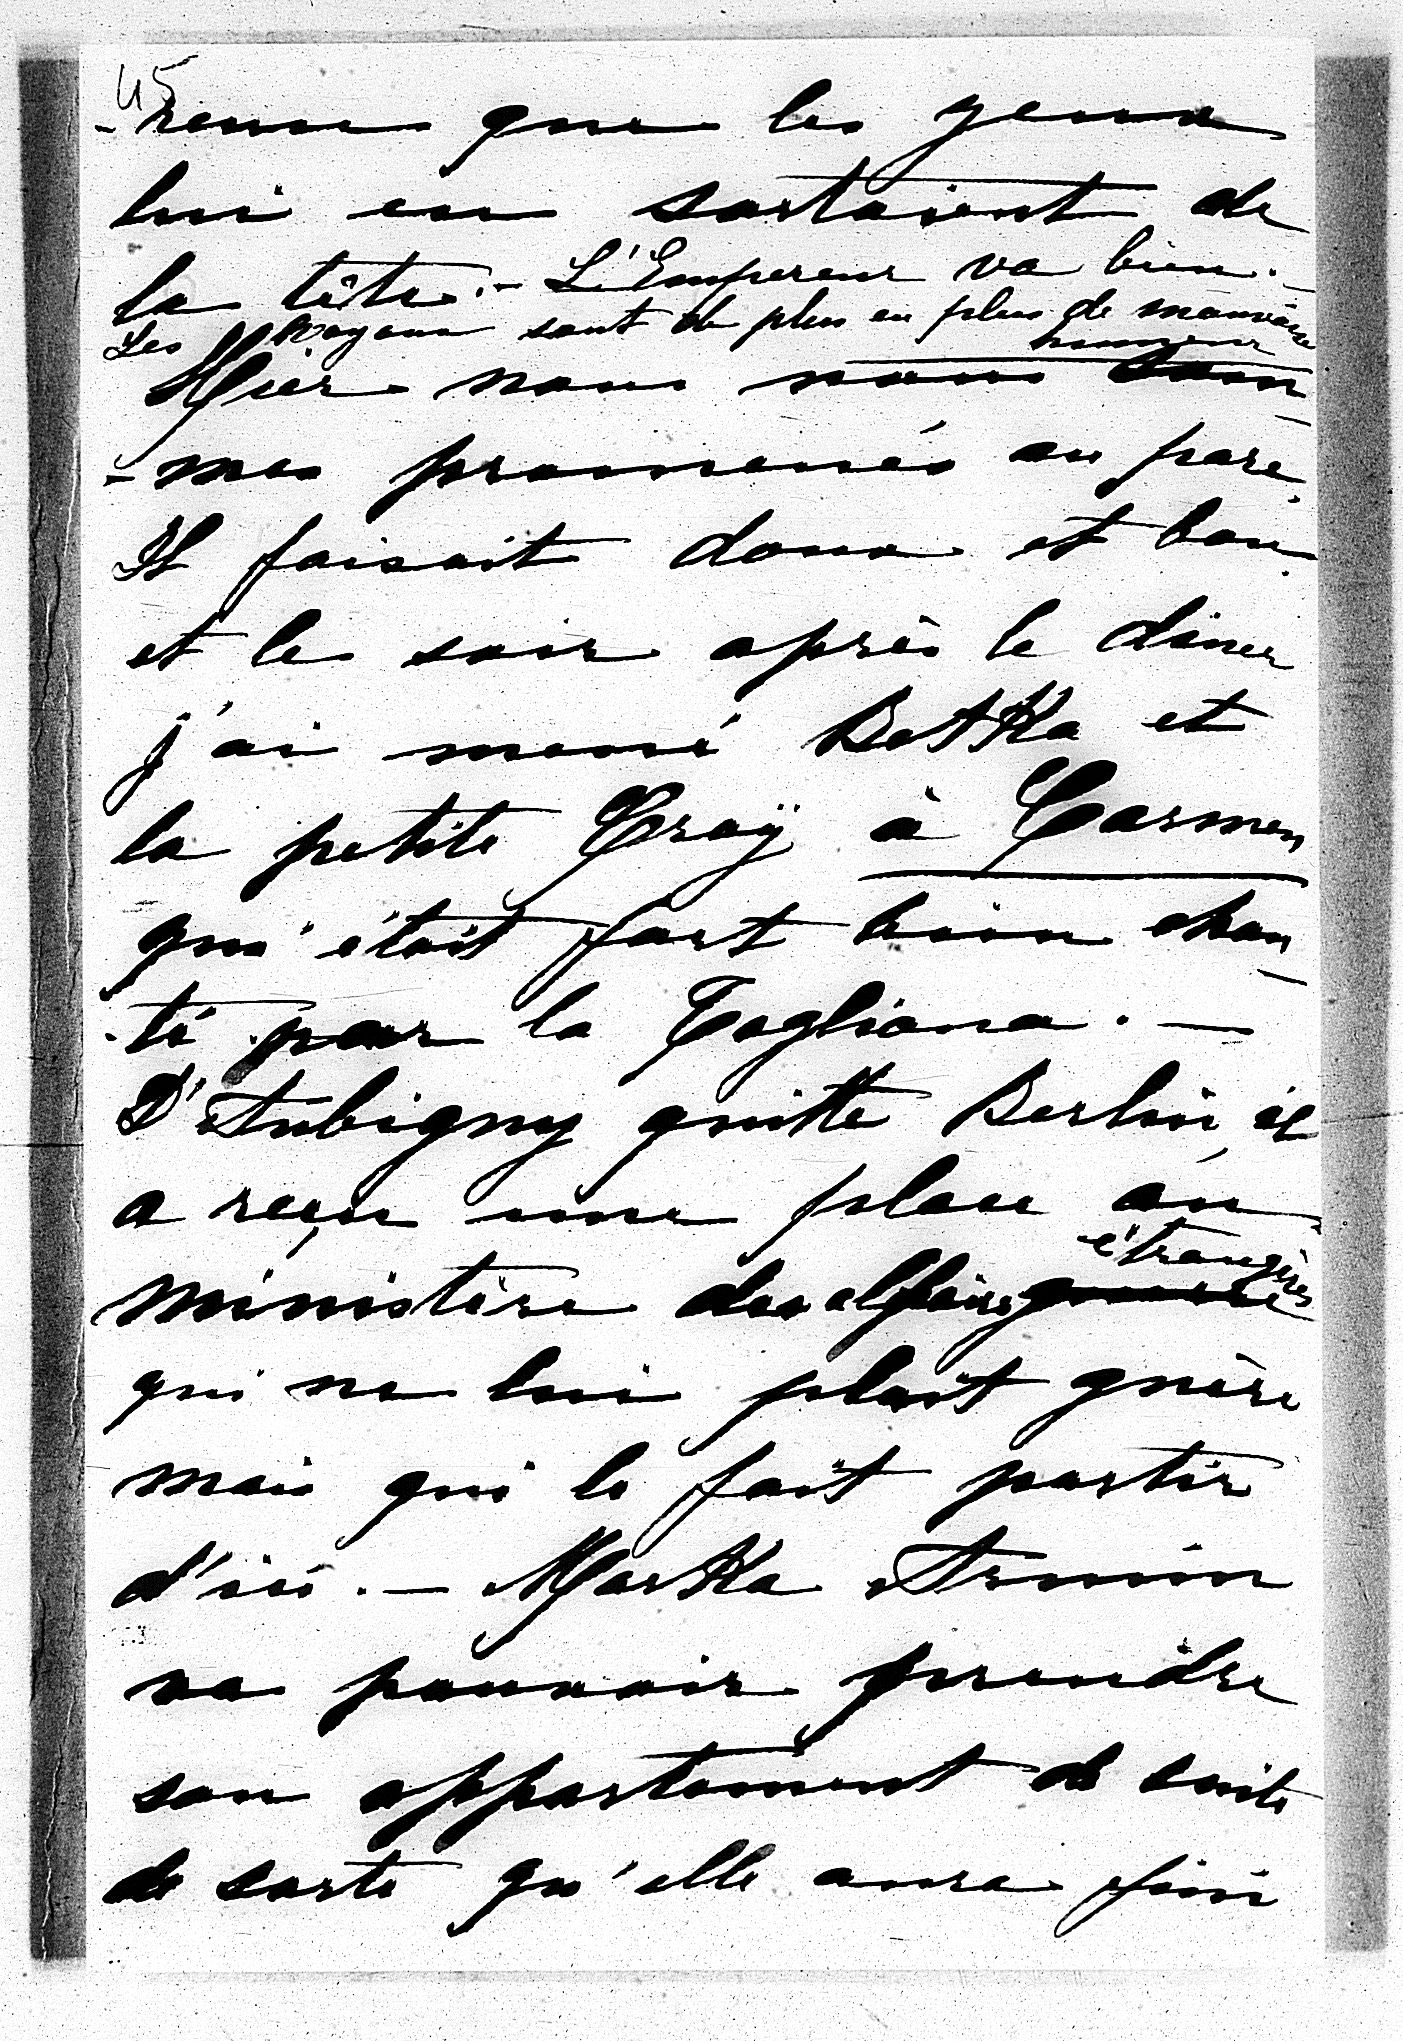 45
-renue que les yeux
lui en sortaient de
la tête. - L'Empereur va bien. -
Les Royaux sont de plus en plus de mauvaise
humeur
Hier nous nous som-
-mes promenés au parc.
Il faisait doux et bon.
et le soir après le diner
j'ai mené Betka et
la petite Croÿ à Carmen
qui était fort bien chan-
-té par la Tagliana. -
D'Aubigny quitte Berlin, il
a reçu une place au
étrangères
ministère des affaires guerre
qui ne lui plait guère
mais qui le fait partir
d'ici. - Marka Arnim
va pouvoir prendre
son appartement de suite
de sorte qu'elle aura fini